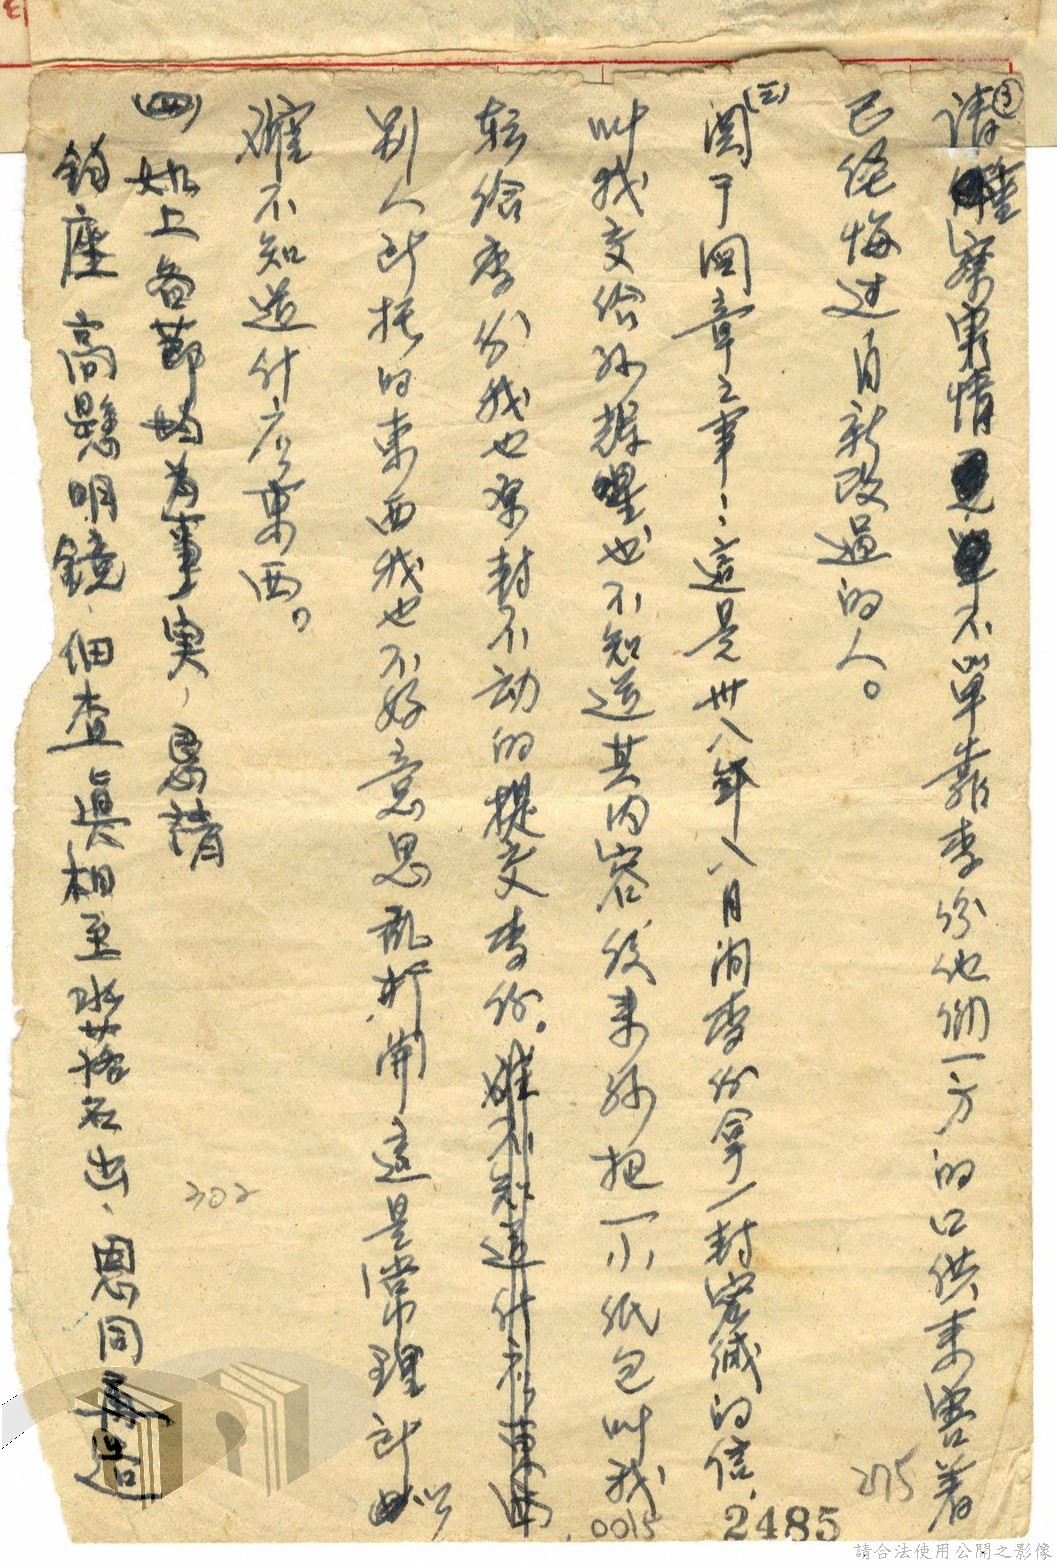 ③
請 察實情 不單靠李份他們一方的口供来害着
已經悔过自新改過的人。
(三)
関于図章之事：這是卅八年八月间李份拿一封密缄的信，
叫我交给孙 也不知道其内容，后来孙把一小纸包叫我
転给李份我也原封不动的提交李份。雖不知道什広東西
别人所托的東西我也不好意思乱拆開這是常理所以
雖不知道什広東西。
(四)如上各節均为事実，恳請
鈞座 高懸明鏡，细查真相至水落石出，恩同再造
302
275
0015
2485
請合法使用公開之影像